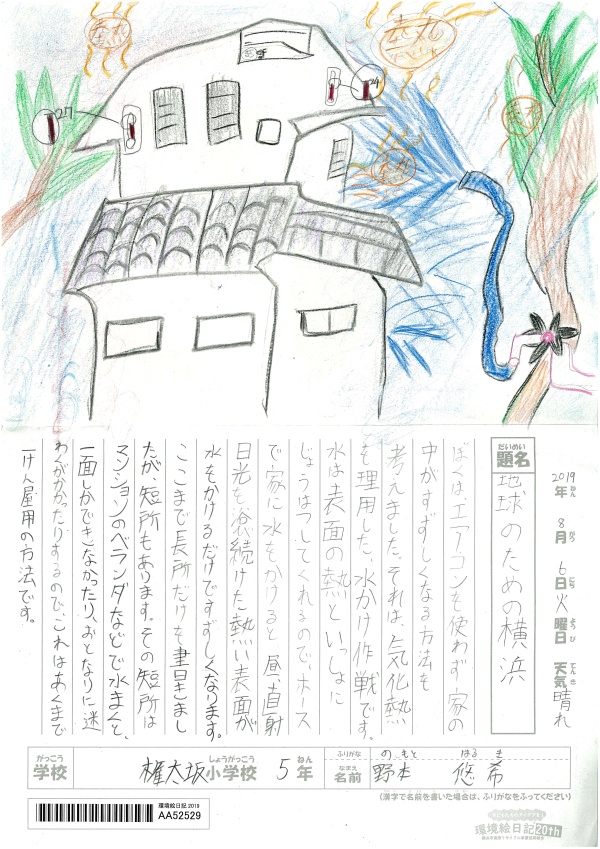 恭丸
恭丸
恭丸
恭丸
27
24
2019年ねん 8月がつ 6日にち 火曜日ようび 天気てんき 晴れ
題名だいめい 地球のための横浜
ぼくは、エアコンを使わず家の
中がすずしくなる方法を
考えました。それは、気化熱
を理用した、水かけ作戦です。
水は表面の熱といっしょに
じょうはつしてくれるので、ホース
で家に水をかけると昼、直射
日光を浴続けた熱い表面が
水をかけるだけですずしくなります。
ここまで長所だけを書きまし
たが、短所もあります。その短所は
マンションのベランダなどで水まくと、
一面しかできなかったり、おとなりに迷
わくがかかったりするので、これはあくまで
一けん屋用の方法です。
学校がっこう 権太坂小学校しょうがっこう 5年ねん
ふりがな のもと はるき
名前なまえ 野本 悠希
(漢字で名前を書いた場合は、ふりがなをふってください)
環境絵日記 2019
AA52529
環境絵日記20th